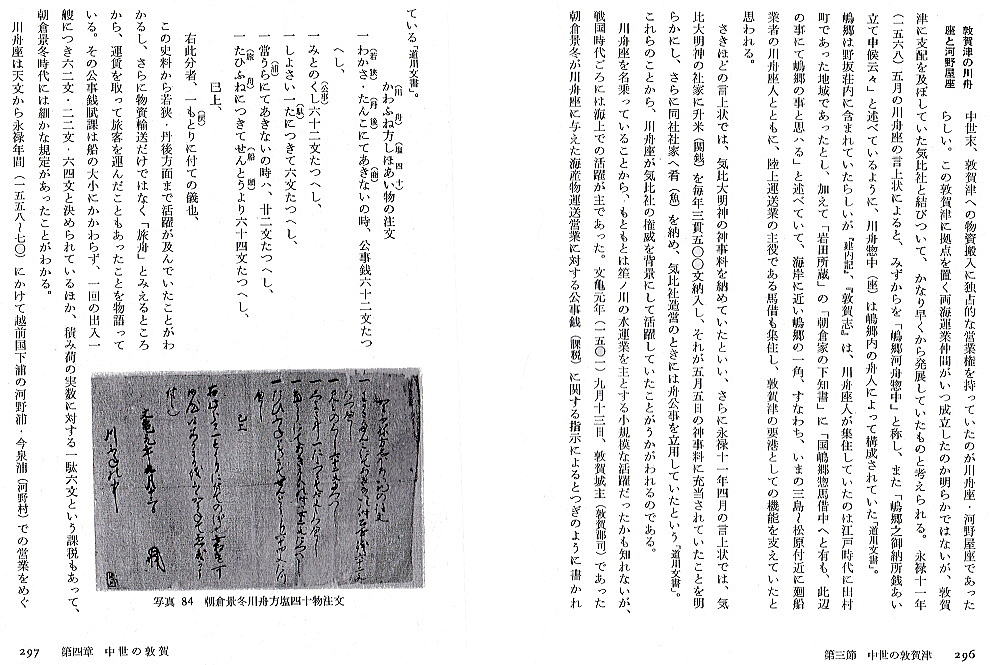 敦賀津の川舟
座と河野屋座
中世末、敦賀津への物資搬入に独占的な営業権を持っていたのが川舟座・河野屋座であった
らしい。この敦賀津に拠点を置く両海運業仲間がいつ成立したのか明らかではないが、敦賀
津に支配を及ぼしていた気比社と結びついて、かなり早くから発展していたものと考えられる。永禄十一年
(一五六八)五月の川舟座の言上状によると、みずからを「嶋郷河舟惣中」と称し、また「嶋郷之御納所銭あい
立て申候云々」と述べているように、川舟惣中(座)は嶋郷内の舟人によって構成されていた「道川文書」。
嶋郷は野坂荘内に含まれていたらしいが、「建内記」、『敦賀志』は、川舟座人が集住していたのは江戸時代に出村
町であった地域であったとし、加えて「岩田所蔵」の「朝倉家の下知書」に「国嶋郷惣馬借中へと有も、此辺
の事にて嶋郷の事と思ハる」と述べていて、海岸に近い嶋郷の一角、すなわち、いまの三島〜松原付近に廻船
業者の川舟座人とともに、陸上運送業の主役である馬借も集住し、敦賀津の要港としての機能を支えていたと
思われる。
さきほどの言上状では、気比大明神の神事料を納めていたといい、さらに永禄十一年四月の言上状では、気
比大明神の社家に升米(関銭)を毎年三貫五〇〇文納入し、それが五月五日の神事料に充当されていたことを明
らかにし、さらに同社社家へ肴(魚)を納め、気比社造営のときには舟公事を立用していたという「道川文書」。
これらのことから、川舟座が気比社の権威を背景にして活躍していたことがうかがわれるのである。
川舟座を名乗っていることから、もともとは笙ノ川の水運業を主とする小規模な活躍だったかも知れないが、
戦国時代ごろには海上での活躍が主であった。文亀元年(一五〇一)九月十三日、敦賀城主(敦賀郡司)であった
朝倉景冬が川舟座に与えた海産物運送営業に対する公事銭(課税)に関する指示によるとつぎのように書かれ
296
第三節 中世の敦賀津
ている「道川文書」。
かわふね方しほあい物の注文
(川舟)(塩四十)
一わかさ・たんこにてあきないの時、公事銭六十二文たつ
(若狭)(丹後)(商)
へし、
一みとのくし六十二文たつへし、
(公事)
一しよさい一たにつきて六文たつへし、
(駄)
一當うらにてあきないの時ハ、廿二文たつへし、
一たひふねにつきてせんとうより六十四文たつへし、
(旅舟)(船頭)
巳上、
右此分者、一もとりに付ての儀也、
(戻)
この史料から若狭・丹後方面まで活躍が及んでいたことがわ
かるし、さらに物資輸送だけではなく「旅舟」とみえるところ
から、運賃を取って旅客を運んだこともあったことを物語って
いる。その公事銭賦課は船の大小にかかわらず、一回の出入一
艘につき六二文・二二文・六四文と決められているほか、積み荷の実数に対する一駄六文という課税もあって、
朝倉景冬時代には細かな規定があったことがわかる。
川舟座は天文から永禄年間(一五五八〜七〇)にかけて越前国下浦の河野浦・今泉浦(河野村)での営業をめぐ
写真 84 朝倉景冬川舟方塩四十物注文
297
第四章 中世の敦賀